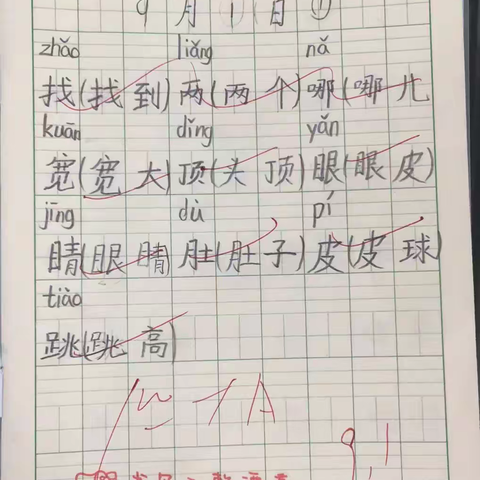 9月1日①
zhǎo liǎng nǎ
找(找到)两(两个)哪(哪儿
kuān dǐng yǎn
宽(宽大)顶(头顶)眼(眼皮)
jīng dù pí
睛(眼睛)肚(肚子)皮(皮球)
tiào
跳(跳高)
A
9.1